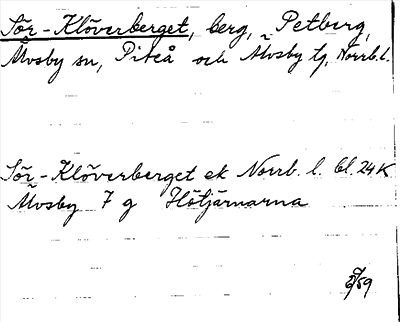 Sör-Klöverberget, berg, Petburg,
Älvsby sn, Piteå och Älvsby tg, Norrb. l.
Sör-Klöverberget ek Norrb. l. bl. 24 K
Älvsby 7 g Hötjärnarna
/59